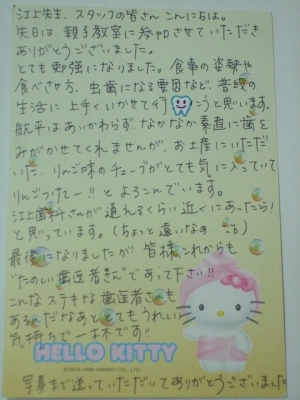 江上先生、スタッフの皆さん こんにちは。
先日は、親子教室に参加させていただき
ありがとうございました。
とても勉強になりました。食事の姿勢や
食べさせ方、虫歯になる要因など、普段の
生活に上手くいかせて行こうと思います。
航平はあいかわらず、なかなか素直に歯を
みがかせてくれませんが、お土産にいただ
いた、りんご味のチューブがとても気に入っていて
りんごつけてー!!とよろこんでいます。
江上歯科さんが通えるくらい近くにあったら!
と思っています。(ちょっと遠いなぁ…)
最後になりましたが 皆様これからも
"たのしい歯医者さん"であって下さい!!
こんなステキな歯医者さんも
あるんだなぁととてもうれしい
気持ちで一杯です!!
HELLO KITTY
写真まで送っていただいてありがとうございました